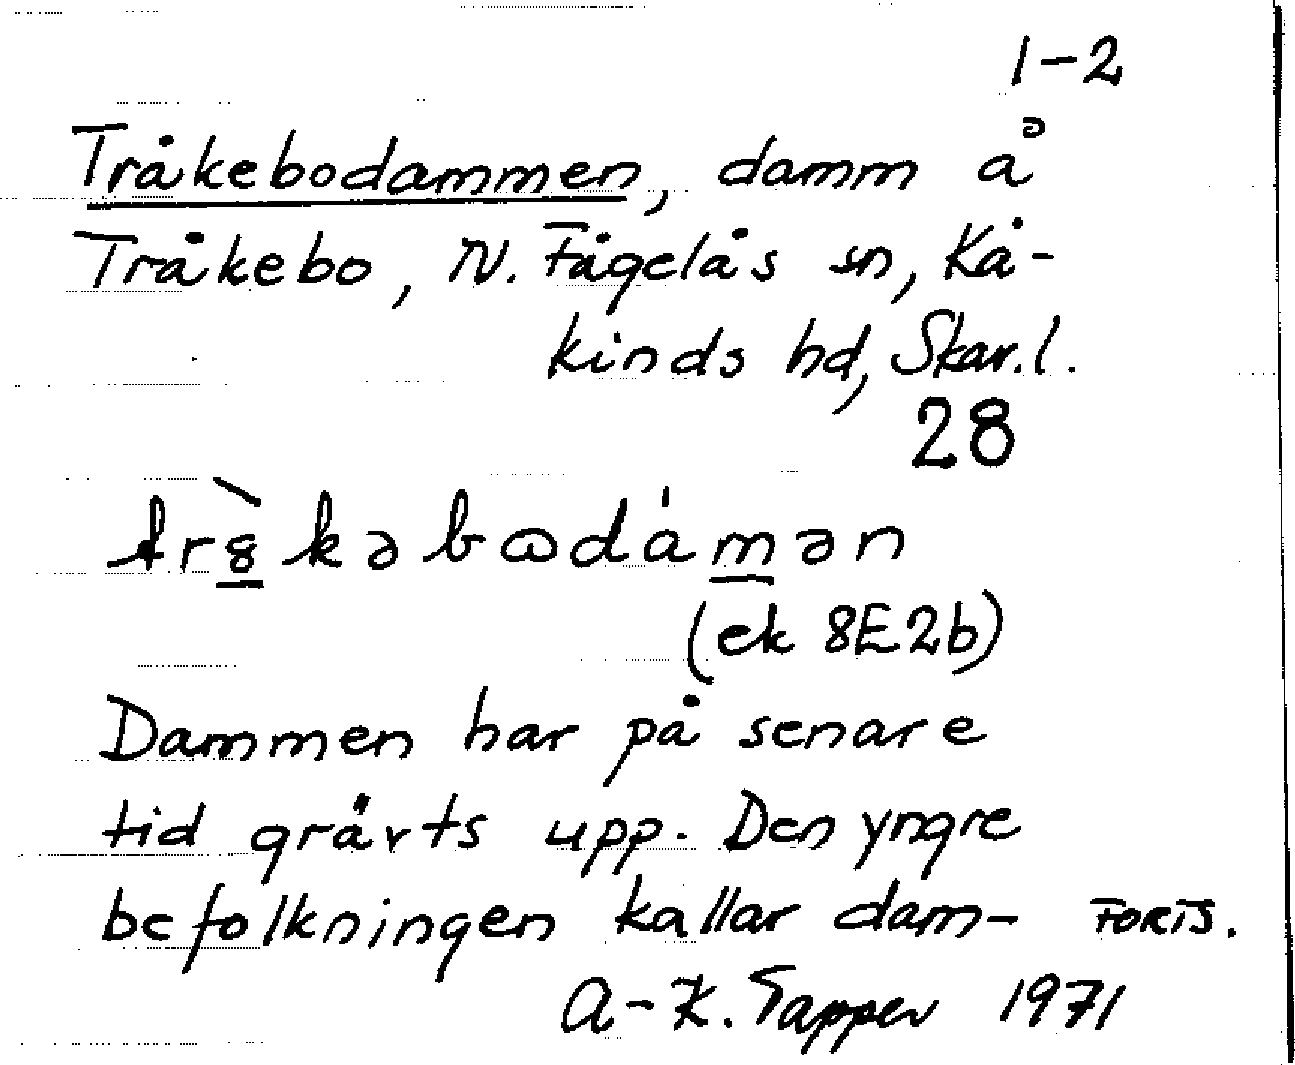 1-2
Tråkebodammen, damm å
Tråkebo, N. Fågelås sn, Kå-
kinds hd, Skar.l.
28
(ek 8E2b)
Dammen har på senare
tid grävts upp. Den yngre
befolkningen kallar dam- FORTS.
A-K. Tapper 1971